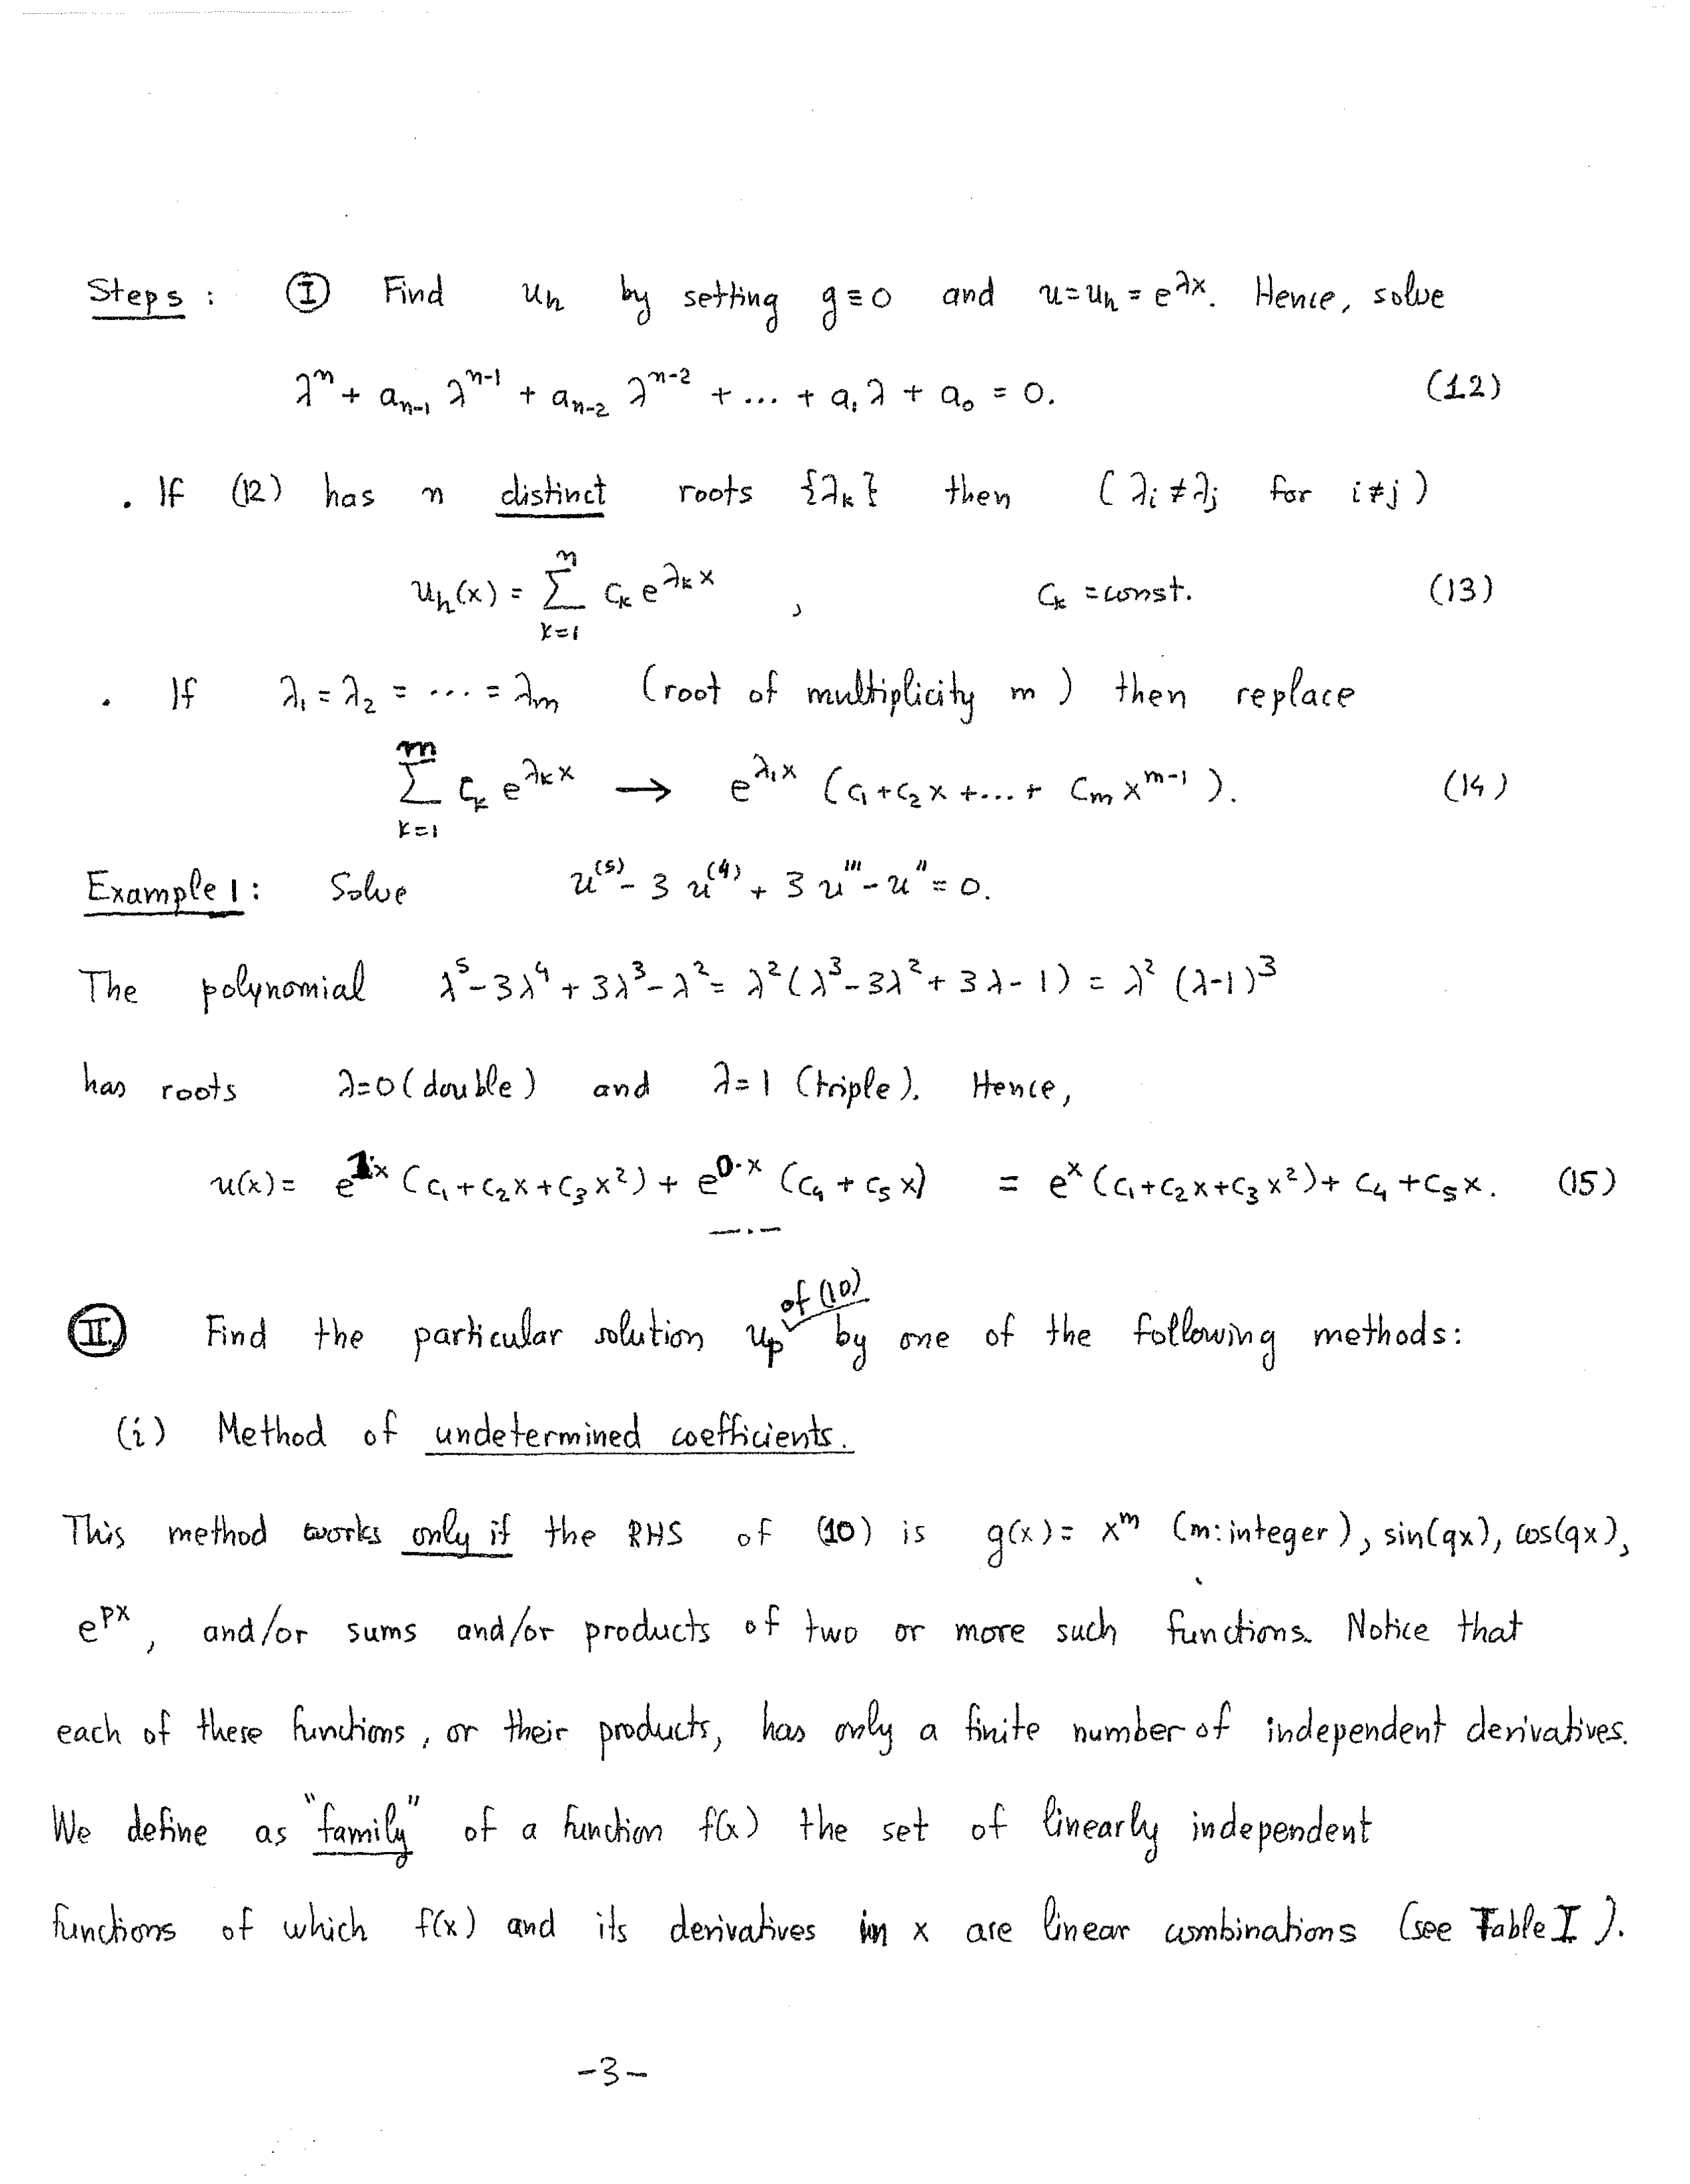 Steps : Ⓘ Find u_h by setting g≡0 and u=u_h=e^{λx}. Hence, solve
λ^n + a_{n-1} λ^{n-1} + a_{n-2} λ^{n-2} + ... + a_1 λ + a_0 = 0. (12)
. If (12) has n distinct roots {λ_k} then (λ_i≠λ_j for i≠j)
u_h(x) = ∑_{k=1}^{n} c_k e^{λ_k x} , c_k = const. (13)
. If λ_1 = λ_2 = .... = λ_m (root of multiplicity m) then replace
∑_{k=1}^{m} c_k e^{λ_k x} → e^{λ_1 x} (c_1+c_2 x +...+ c_m x^{m-1}). (14)
Example 1: Solve u^{(5)} - 3 u^{(4)} + 3 u''' - u'' = 0.
The polynomial λ^5-3λ^4+3λ^3-λ^2 = λ^2(λ^3-3λ^2+3λ-1) = λ^2 (λ-1)^3
has roots λ=0 (double) and λ=1 (triple). Hence,
u(x) = e^{1·x} (c_1+c_2x+c_3x^2) + e^{0·x} (c_4 + c_5 x) = e^x (c_1+c_2x+c_3x^2) + c_4 +c_5x. (15)
—.—
II. Find the particular solution u_p of (10) by one of the following methods:
(i) Method of undetermined coefficients.
This method works only if the RHS of (10) is g(x)= x^m (m: integer), sin(qx), cos(qx),
e^{px}, and/or sums and/or products of two or more such functions. Notice that
each of these functions, or their products, has only a finite number of independent derivatives.
We define as "family" of a function f(x) the set of linearly independent
functions of which f(x) and its derivatives in x are linear combinations (see Table I).
-3-